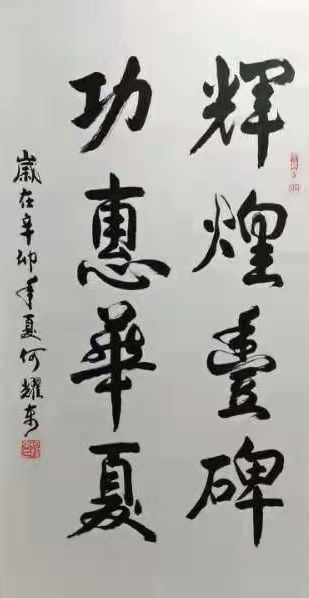 輝煌豐碑
功惠華夏
歲在辛卯年夏何耀东